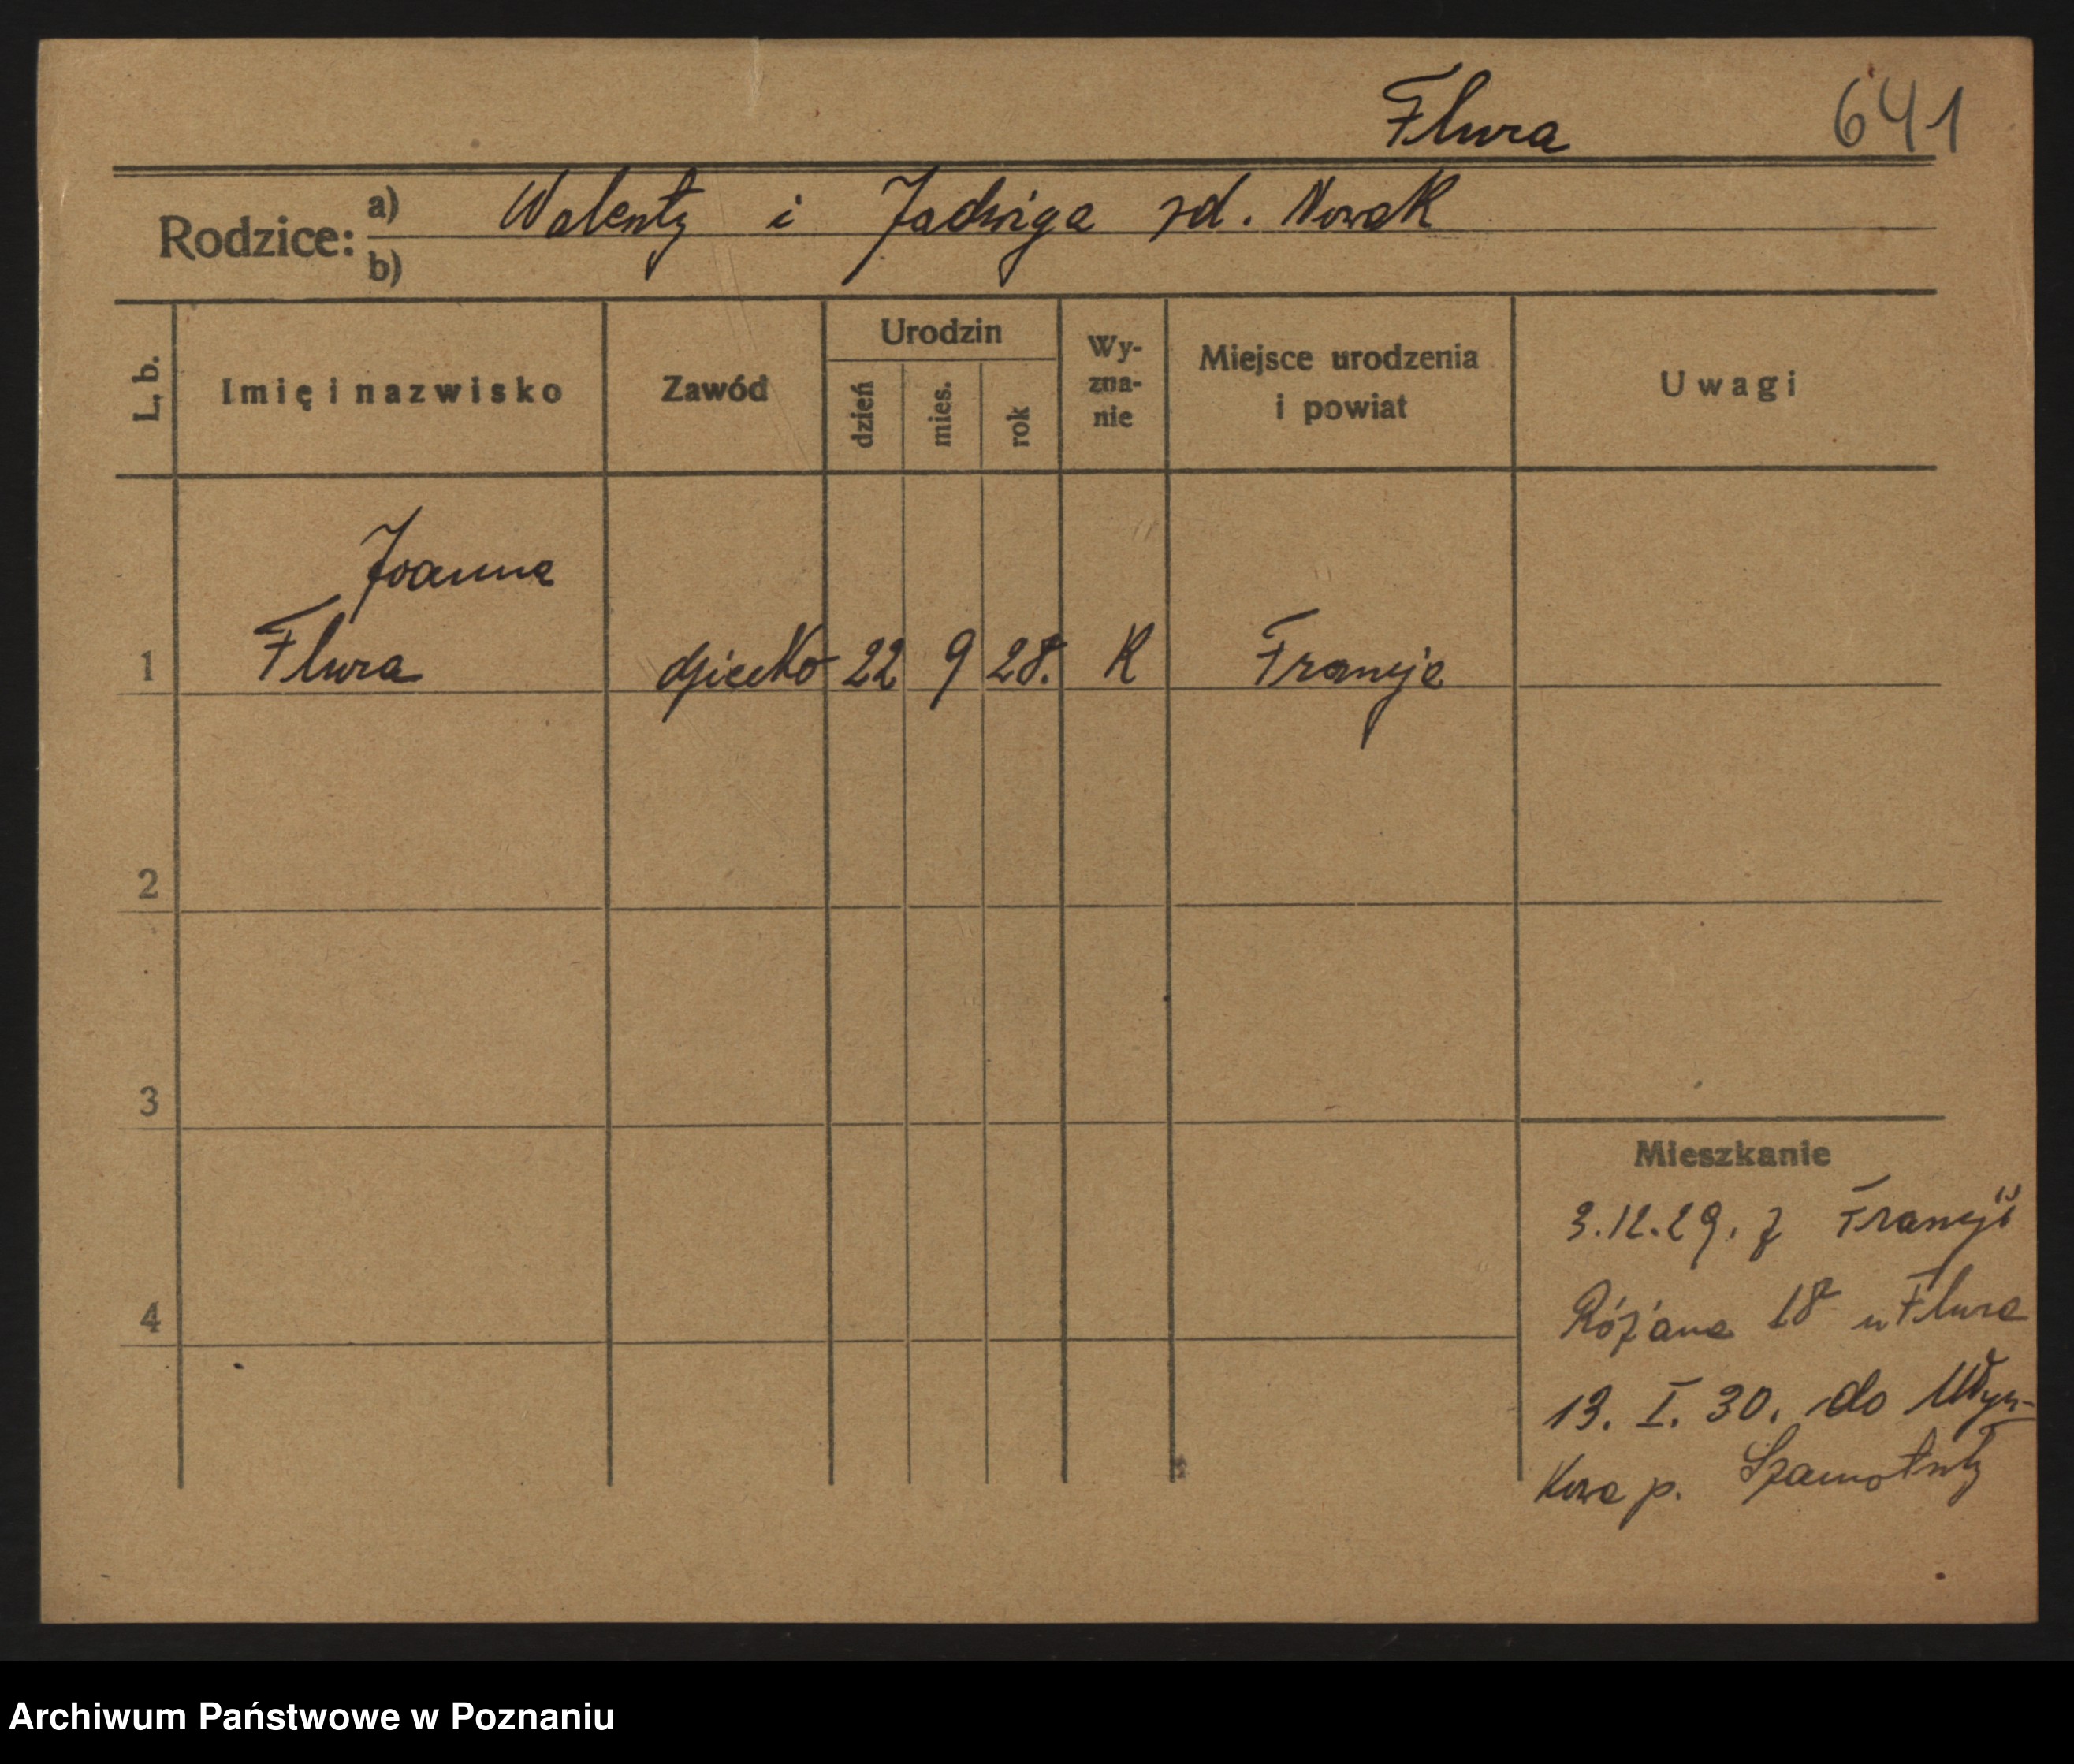 Flura 641
Rodzice: a) Walenty i Jadwiga zd. Nowak
b)
L. b. Imię i nazwisko Zawód Urodzin dzień mies. rok Wy-zna-nie Miejsce urodzenia i powiat Uwagi
Joanna
1 Flura dziecko 22 9 28. K Francja
2
3
Mieszkanie
3.12.29. z Francji
4
Różana 18 u Flura
13. I. 30. do Młyn-
kowa p. Szamotuły
Archiwum Państwowe w Poznaniu